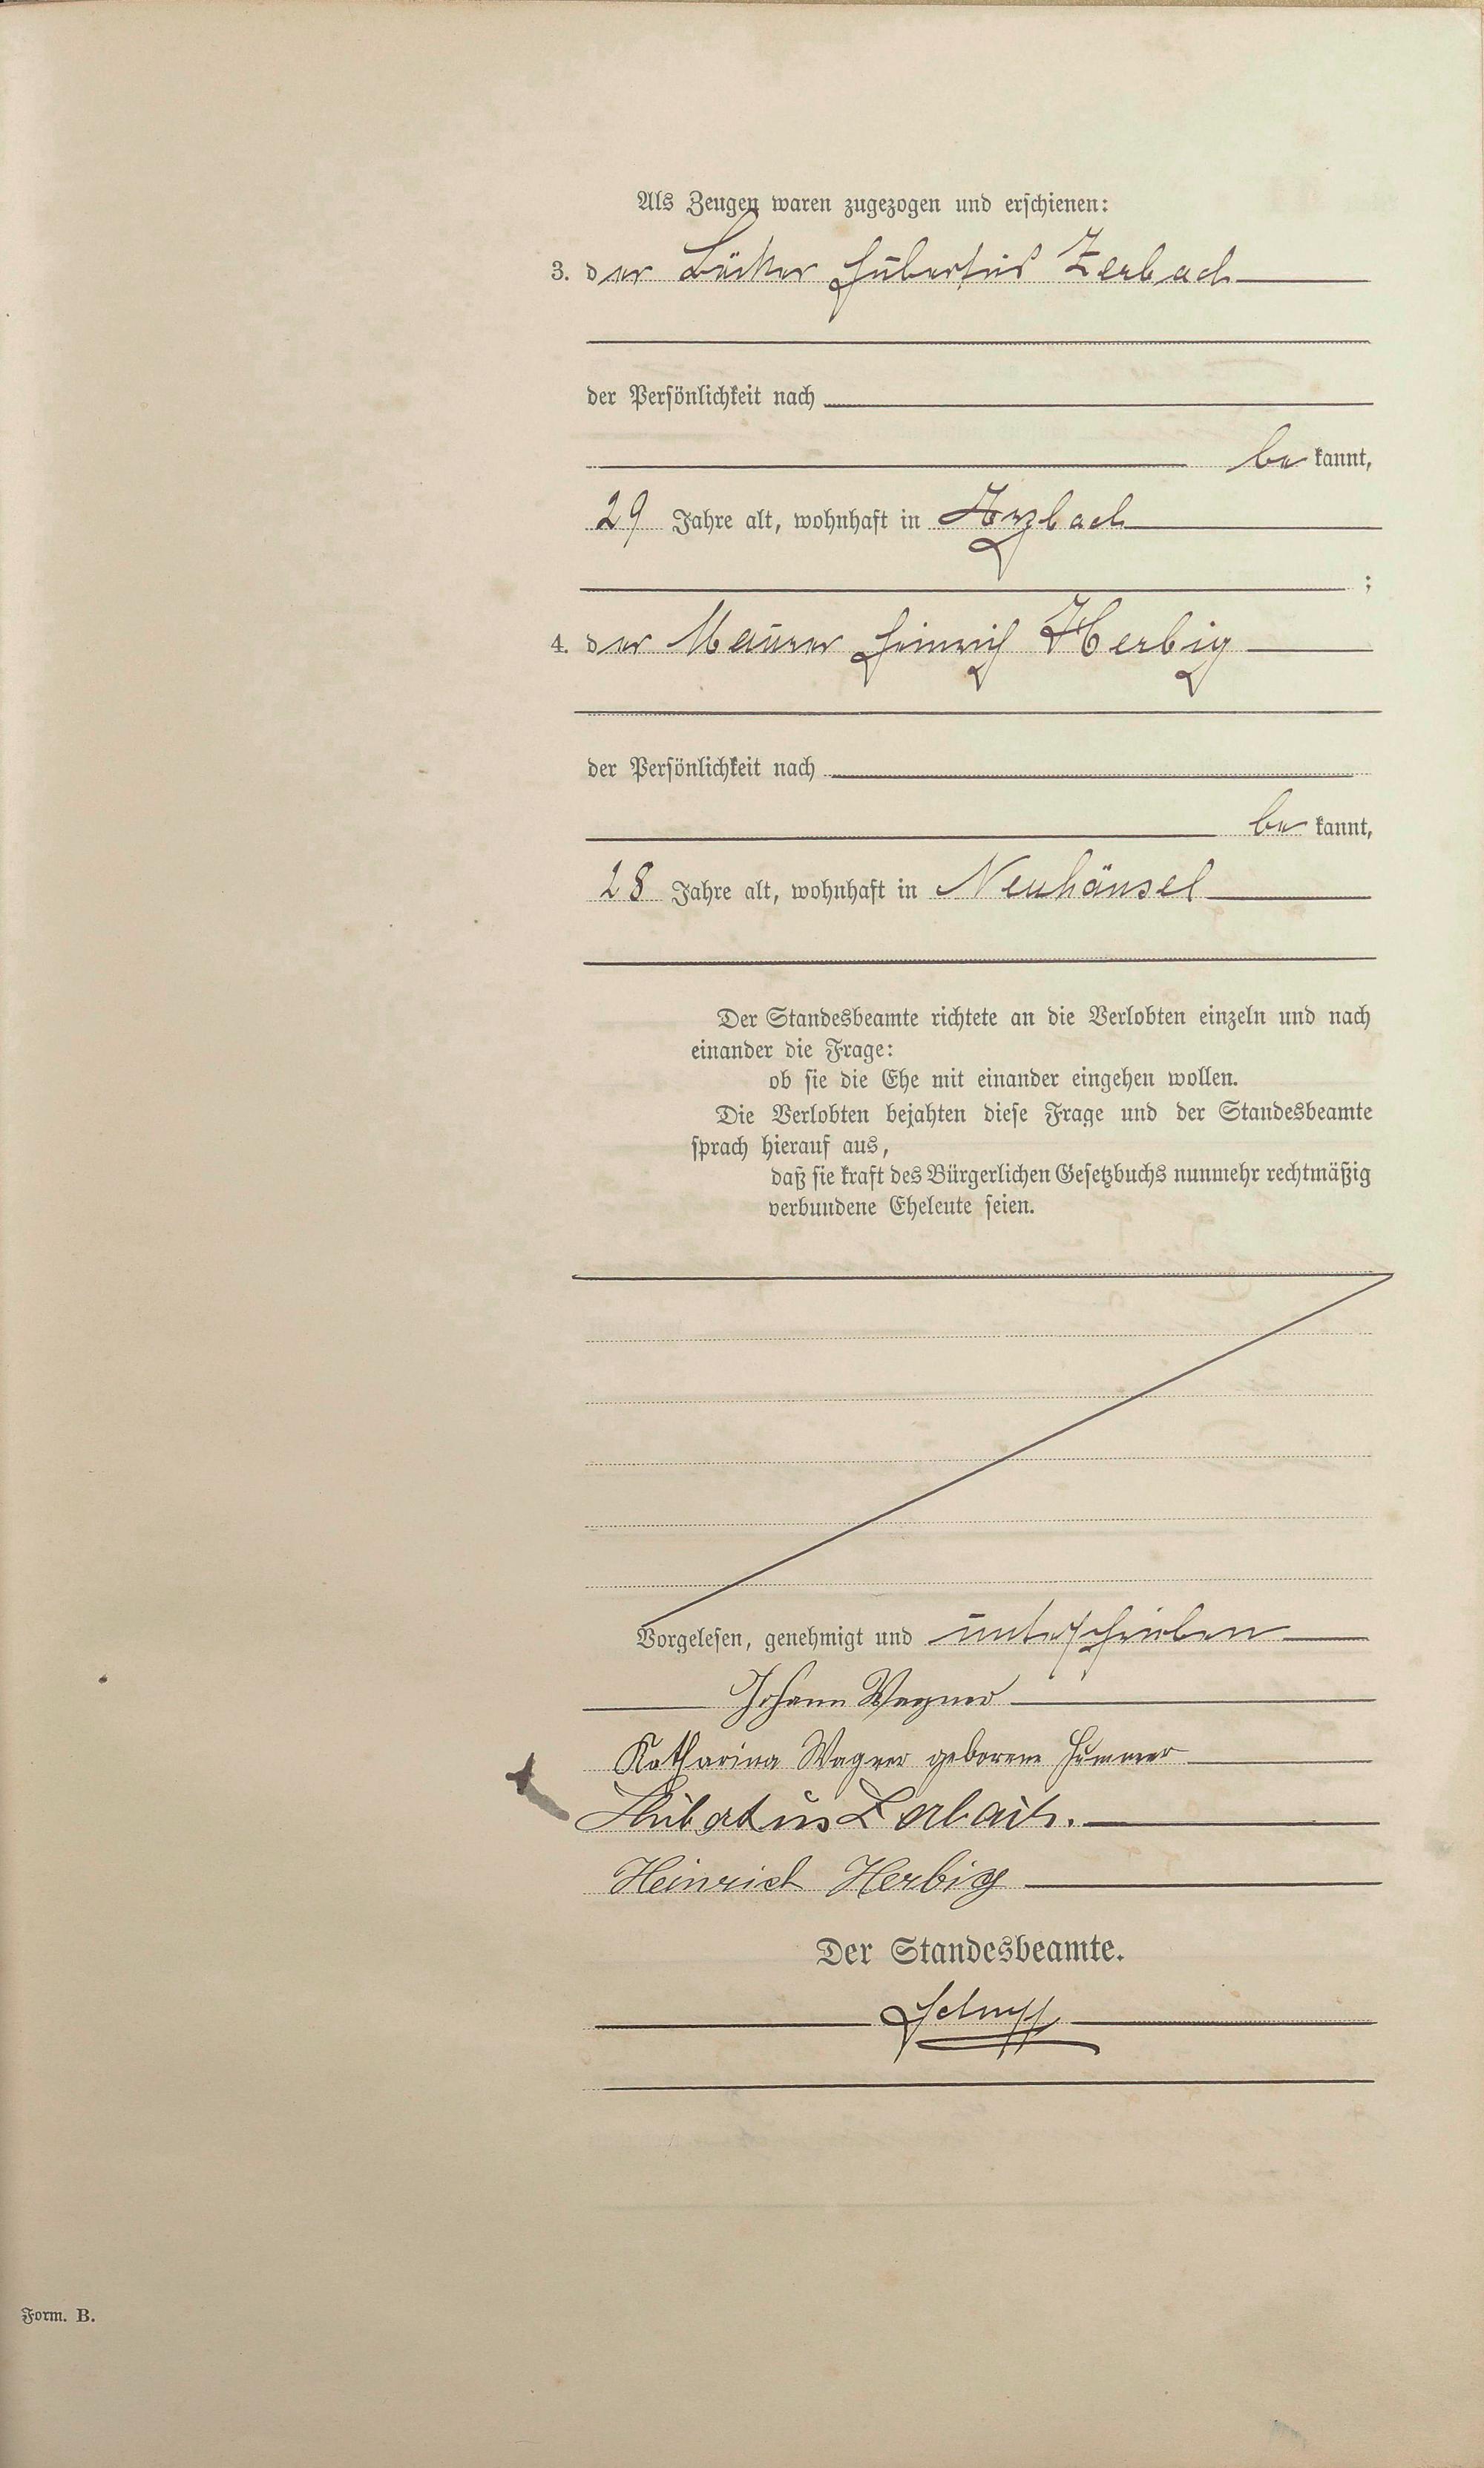 Als Zeugen waren zugezogen und erschienen:
3. der Bäcker Hubertus Zerbach
der Persönlichkeit nach
be kannt,
29 Jahre alt, wohnhaft in Arzbach
;
4. der Maurer Heinrich Herbig
der Persönlichkeit nach
be kannt,
28 Jahre alt, wohnhaft in Neuhäusel
Der Standesbeamte richtete an die Verlobten einzeln und nach
einander die Frage:
ob sie die Ehe mit einander eingehen wollen.
Die Verlobten bejahten diese Frage und der Standesbeamte
sprach hierauf aus,
daß sie kraft des Bürgerlichen Gesetzbuchs nunmehr rechtmäßig
verbundene Eheleute seien.
Vorgelesen, genehmigt und unterschrieben
Johann Wagner
Katharina Wagner geborene Hummer
Hubertus Zerbach.
Heinrich Herbig
Der Standesbeamte.
Form. B.